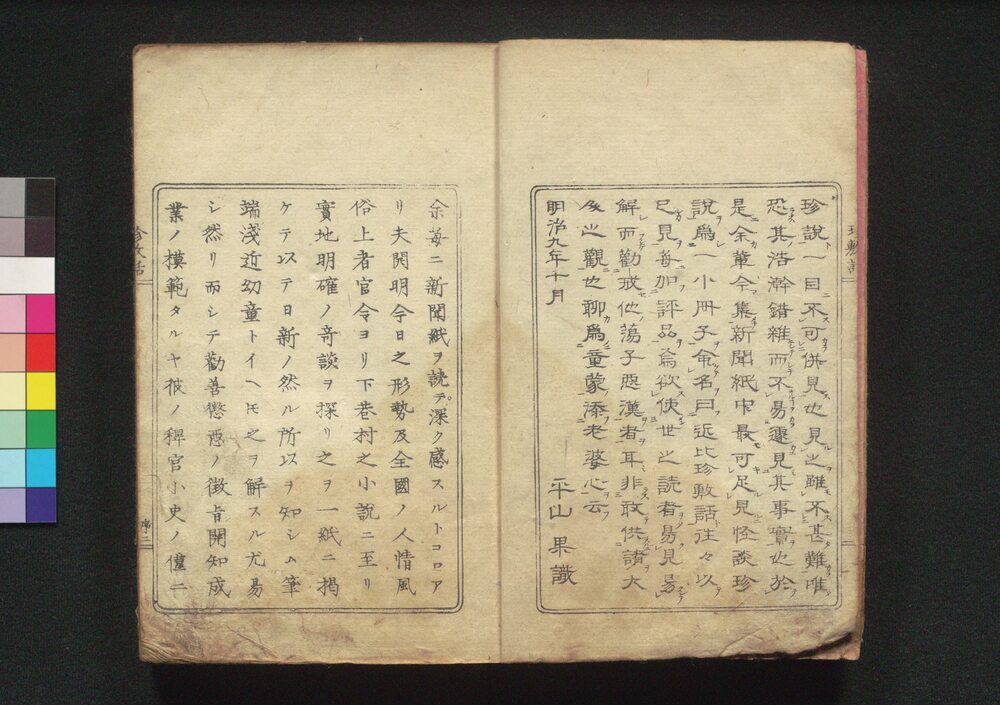 珍說一目不可併見也見之雖不甚難唯
恐其浩瀚錯雜而不易遽見其事實也於
是余輩今集新聞紙中最可足見怪談珍
說爲一小冊子命名曰近比珍敷話往々以
已見每加評品爲欲使世之読者易見易
解而勸戒他蕩子惡漢者耳非敢供諸大
之觀也聊爲童蒙添老婆心云
明治九年十月
平山果識
余每ニ新聞紙ヲ読テ深ク感スルトコロア
リ夫開明今日之形勢及全國ノ人情風
俗上者官令ヨリ下巷村之小說ニ至リ
實地明確ノ奇談ヲ探リ之ヲ一紙ニ揭
ケテ以テ日新ノ然ル所以ヲ知シム筆
端淺近幼童トイヘ𪜈之ヲ解スル尤易
シ然リ而シテ勸善懲惡ノ徵旨開知成
業ノ模範タルヤ彼ノ稗官小史ノ僅ニ
序二